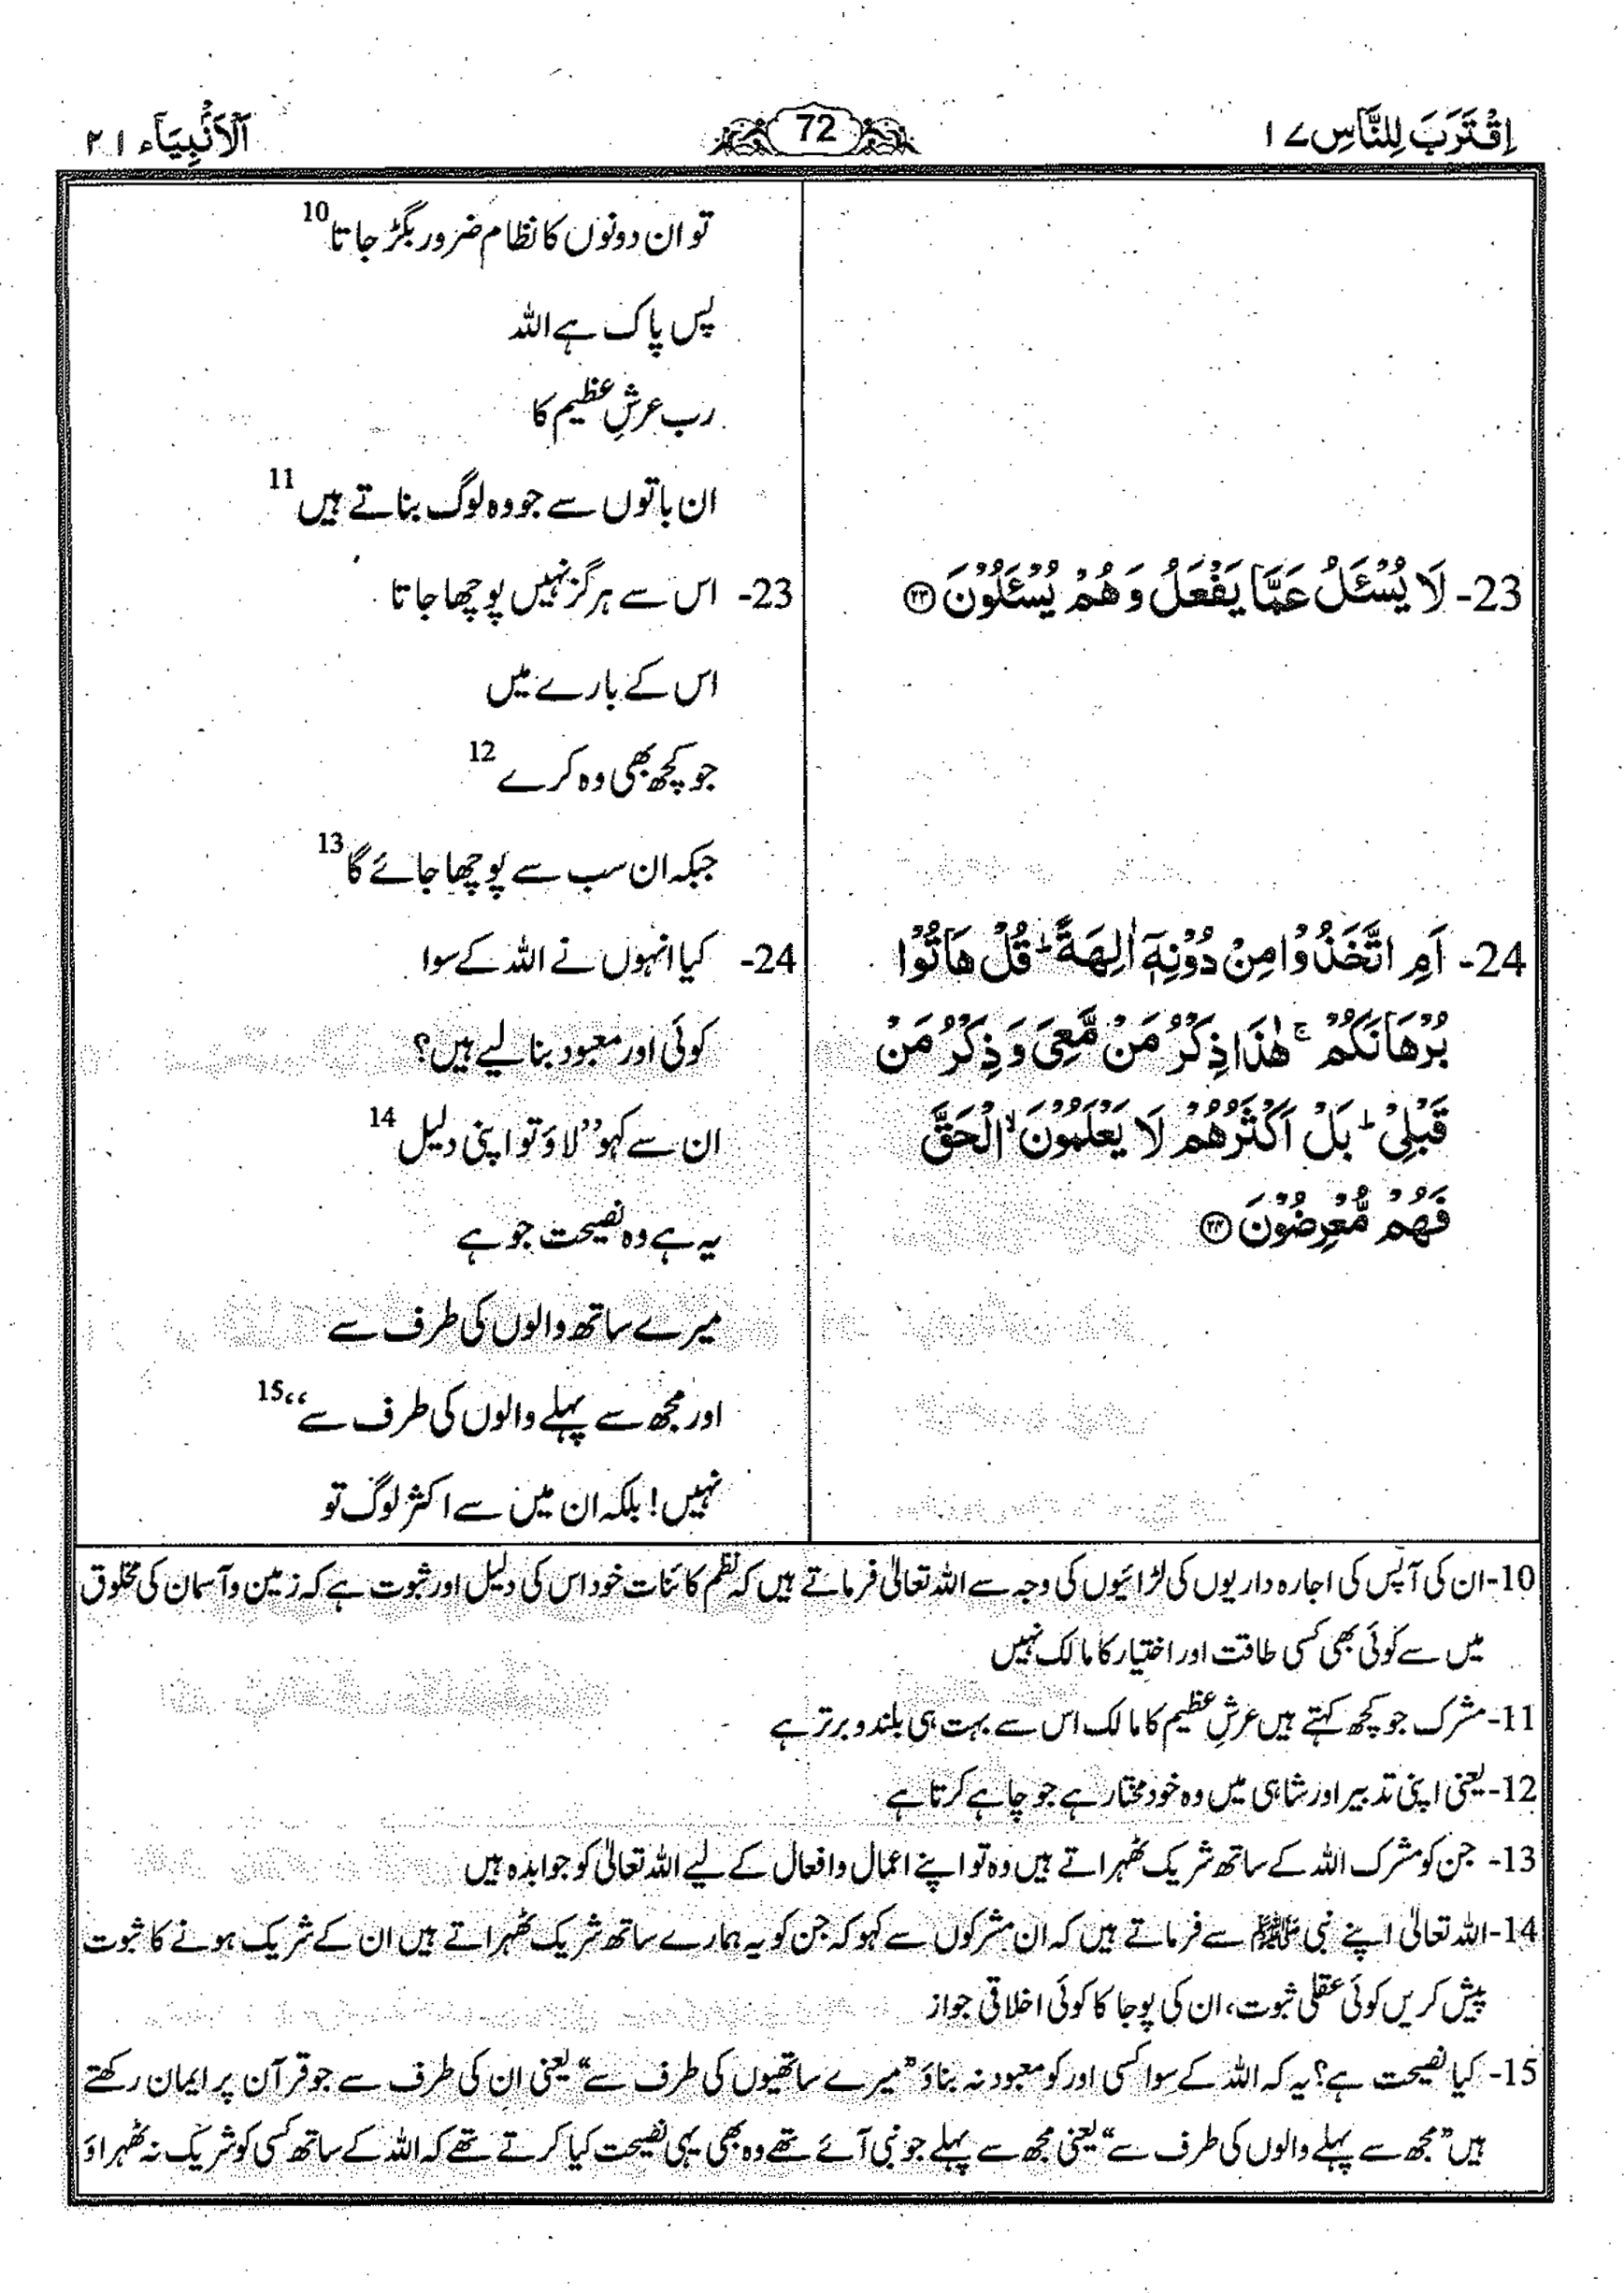 اِقْتَرَبَ لِلنَّاسِ ۱۷
72
اَلْاَنْۢبِيَآء ۲۱
تو ان دونوں کا نظام ضرور بگڑ جاتا 10
پس پاک ہے اللہ
رب عرشِ عظیم کا
ان باتوں سے جو وہ لوگ بناتے ہیں 11
23- لَا يُسْـَٔلُ عَمَّا يَفْعَلُ وَهُمْ يُسْـَٔلُوْنَ ﴿۲۳﴾
23- اس سے ہرگز نہیں پوچھا جاتا
اس کے بارے میں
جو کچھ بھی وہ کرے 12
جبکہ ان سب سے پوچھا جائے گا 13
24- اَمِ اتَّخَذُوْا مِنْ دُوْنِهٖٓ اٰلِهَةً ؕ قُلْ هَاتُوْا
بُرْهَانَكُمْ ۚ هٰذَا ذِكْرُ مَنْ مَّعِىَ وَذِكْرُ مَنْ
قَبْلِىْ ؕ بَلْ اَكْثَرُهُمْ لَا يَعْلَمُوْنَ ۙ الْحَقَّ
فَهُمْ مُّعْرِضُوْنَ ﴿۲۴﴾
24- کیا انہوں نے اللہ کے سوا
کوئی اور معبود بنا لیے ہیں؟
ان سے کہو ’’لاؤ تو اپنی دلیل 14
یہ ہے وہ نصیحت جو ہے
میرے ساتھ والوں کی طرف سے
اور مجھ سے پہلے والوں کی طرف سے‘‘ 15
نہیں! بلکہ ان میں سے اکثر لوگ تو
10- ان کی آپس کی اجارہ داریوں کی لڑائیوں کی وجہ سے اللہ تعالیٰ فرماتے ہیں کہ نظم کائنات خود اس کی دلیل اور ثبوت ہے کہ زمین و آسمان کی مخلوق
میں سے کوئی بھی کسی طاقت اور اختیار کا مالک نہیں
11- مشرک جو کچھ کہتے ہیں عرشِ عظیم کا مالک اس سے بہت ہی بلند و برتر ہے
12- یعنی اپنی تدبیر اور شاہی میں وہ خود مختار ہے جو چاہے کرتا ہے
13- جن کو مشرک اللہ کے ساتھ شریک ٹھہراتے ہیں وہ تو اپنے اعمال و افعال کے لیے اللہ تعالیٰ کو جوابدہ ہیں
14- اللہ تعالیٰ اپنے نبی ﷺ سے فرماتے ہیں کہ ان مشرکوں سے کہو کہ جن کو یہ ہمارے ساتھ شریک ٹھہراتے ہیں ان کے شریک ہونے کا ثبوت
پیش کریں کوئی عقلی ثبوت، ان کی پوجا کا کوئی اخلاقی جواز
15- کیا نصیحت ہے؟ یہ کہ اللہ کے سوا کسی اور کو معبود نہ بناؤ ”میرے ساتھیوں کی طرف سے“ یعنی ان کی طرف سے جو قرآن پر ایمان رکھتے
ہیں ”مجھ سے پہلے والوں کی طرف سے“ یعنی مجھ سے پہلے جو نبی آئے تھے وہ بھی یہی نصیحت کیا کرتے تھے کہ اللہ کے ساتھ کسی کو شریک نہ ٹھہراؤ